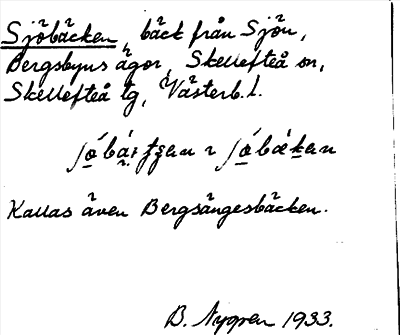 Sjöbäcken, bäck från Sjön,
Bergsbyns ägor, Skellefteå sn,
Skellefteå tg, Västerb. l.
Kallas även Bergsängesbäcken.
B. Nygren 1933.